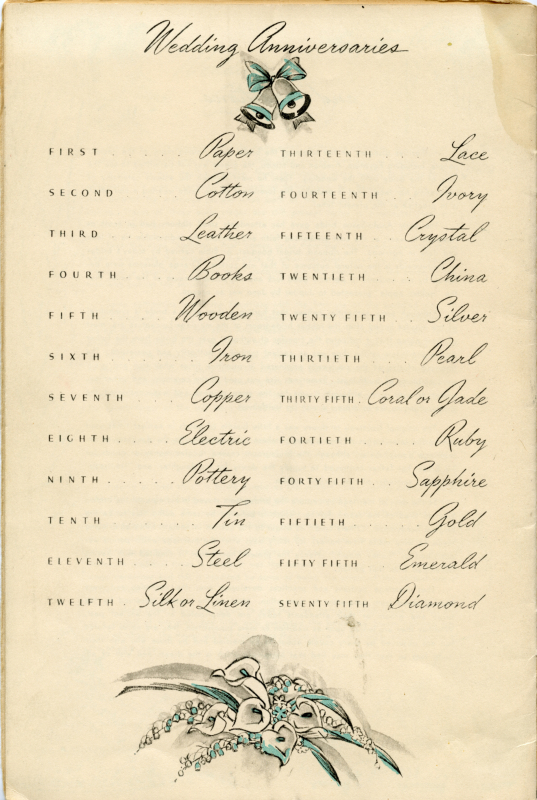 Wedding Anniversaries
FIRST . . . . . . Paper
SECOND . . . . . Cotton
THIRD . . . . . Leather
FOURTH . . . . . Books
FIFTH . . . . . Wooden
SIXTH . . . . . . . Iron
SEVENTH . . . . Copper
EIGHTH . . . . Electric
NINTH . . . . . Pottery
TENTH . . . . . . . Tin
ELEVENTH . . . . Steel
TWELFTH . Silk or Linen
THIRTEENTH . . . Lace
FOURTEENTH . . . Ivory
FIFTEENTH . . Crystal
TWENTIETH . . . China
TWENTY FIFTH . . Silver
THIRTIETH . . . . Pearl
THIRTY FIFTH . Coral or Jade
FORTIETH . . . . . Ruby
FORTY FIFTH . Sapphire
FIFTIETH . . . . . Gold
FIFTY FIFTH . . Emerald
SEVENTY FIFTH Diamond